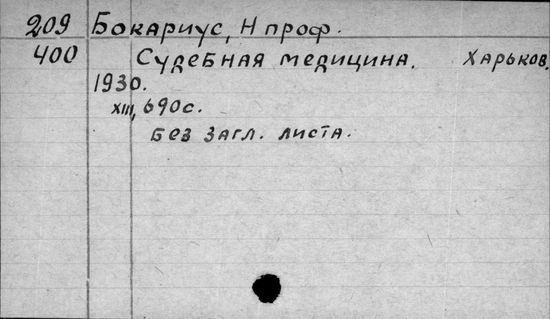 209 Бокариус, Н проф.
400 Судебная медицина. Харьков.
1930.
XIII, 690с.
Без загл. листа.